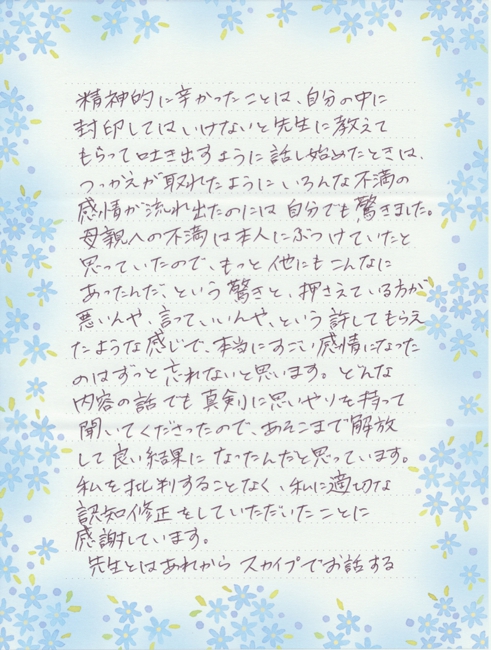 精神的に辛かったことは、自分の中に
封印してはいけないと先生に教えて
もらって吐き出すように話し始めたときは、
つっかえが取れたようにいろんな不満の
感情が流れ出たのには自分でも驚きました。
母親への不満は本人にぶつけていたと
思っていたので、もっと他にもこんなに
あったんだ、という驚きと、押さえている方が
悪いんや、言っていいんや、という許してもらえ
たような感じで、本当にすごい感情になった
のはずっと忘れないと思います。どんな
内容の話でも真剣に思いやりを持って
聞いてくださったので、あそこまで解放
して良い結果になったんだと思っています。
私を批判することなく、私に適切な
認知修正をしていただいたことに
感謝しています。
先生とはあれからスカイプでお話する